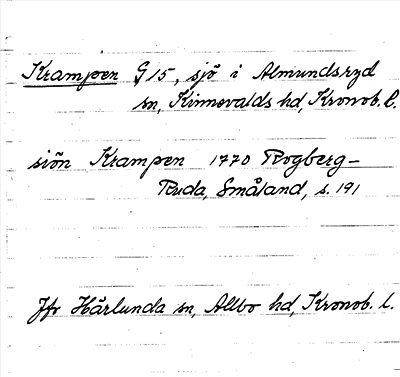 Krampen G 15, sjö i Almundsryd
sn, Kinnevalds hd, Kronob. l.
siön Krampen 1770 Rogberg-
Ruda, Småland, s. 191
Jfr Härlunda sn, Allbo hd, Kronob. l.